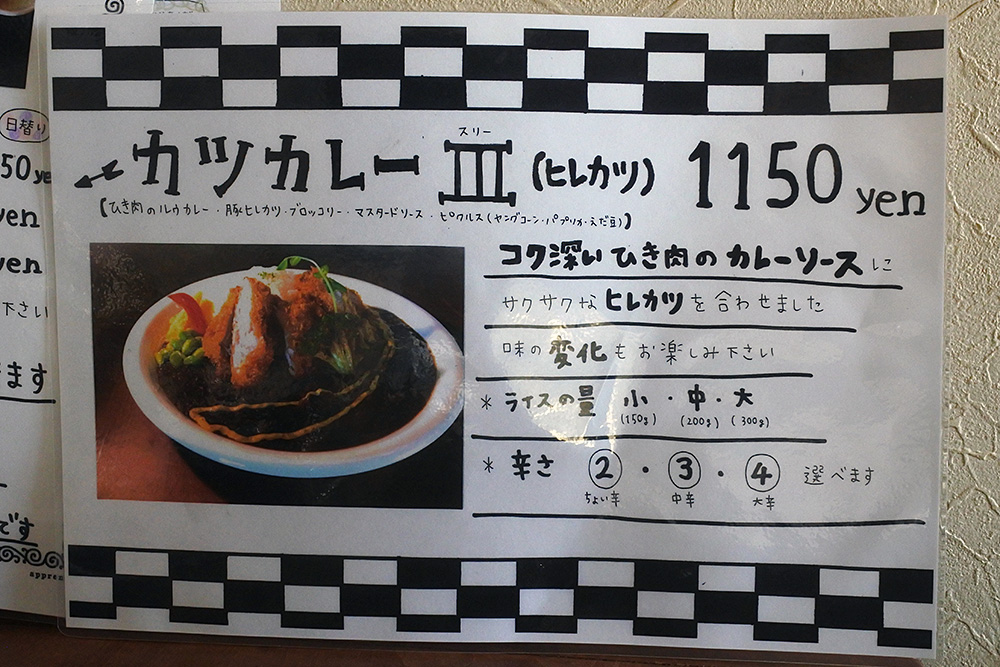 スリー
カツカレー III (ヒレカツ) 1150 yen
【ひき肉のルウカレー・豚ヒレカツ・ブロッコリー・マスタードソース・ピクルス(ヤングコーン・パプリカ・えだ豆)】
コク深いひき肉のカレーソースに
サクサクなヒレカツを合わせました
味の変化もお楽しみ下さい
*ライスの量 小・中・大
(150g) (200g) (300g)
*辛さ ②・③・④ 選べます
ちょい辛 中辛 大辛
日替り
50 ye
yen
yen
下さい
ます
です
appren